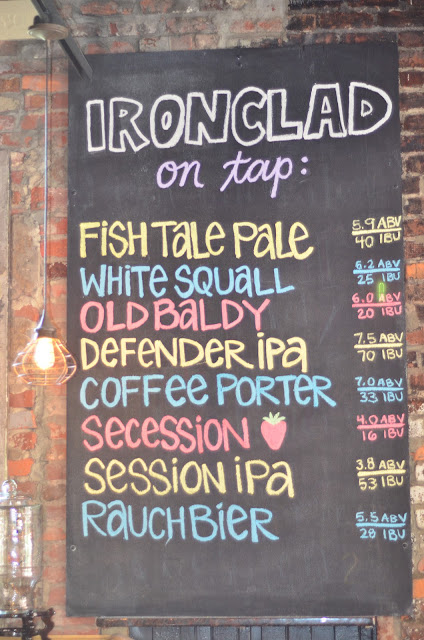 IRONCLAD
on tap:
FISH TALE PALE 5.9 ABV
40 IBU
WHITE SQUALL 6.2 ABV
25 IBU
OLD BALDY 6.0 ABV
20 IBU
DEFENDER IPA 7.5 ABV
70 IBU
COFFEE PORTER 7.0 ABV
33 IBU
SECESSION 4.0 ABV
16 IBU
SESSION IPA 3.8 ABV
53 IBU
RAUCHBIER 5.5 ABV
28 IBU